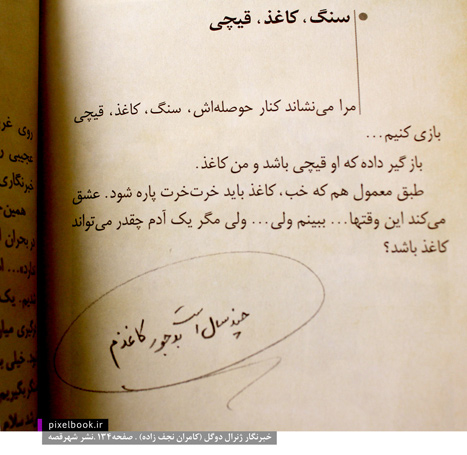 سنگ، کاغذ، قیچی
مرا می‌نشاند کنار حوصله‌اش، سنگ، کاغذ، قیچی
بازی کنیم...
باز گیر داده که او قیچی باشد و من کاغذ.
طبق معمول هم که خب، کاغذ باید خرت‌خرت پاره شود. عشق
می‌کند این وقتها... ببینم ولی... ولی مگر یک آدم چقدر می‌تواند
کاغذ باشد؟
چند سال است بدجور کاغذم
روی غر
عجیبی ر
خبرنگاری
همین‌ح
در بحران ا
ندیم. یک
وگیری میار
ود خیلی ب
مگر بگیریم
pixelbook.ir
خبرنگار ژنرال دوگل (کامران نجف زاده) . صفحه ۱۳۴ .نشر شهرقصه